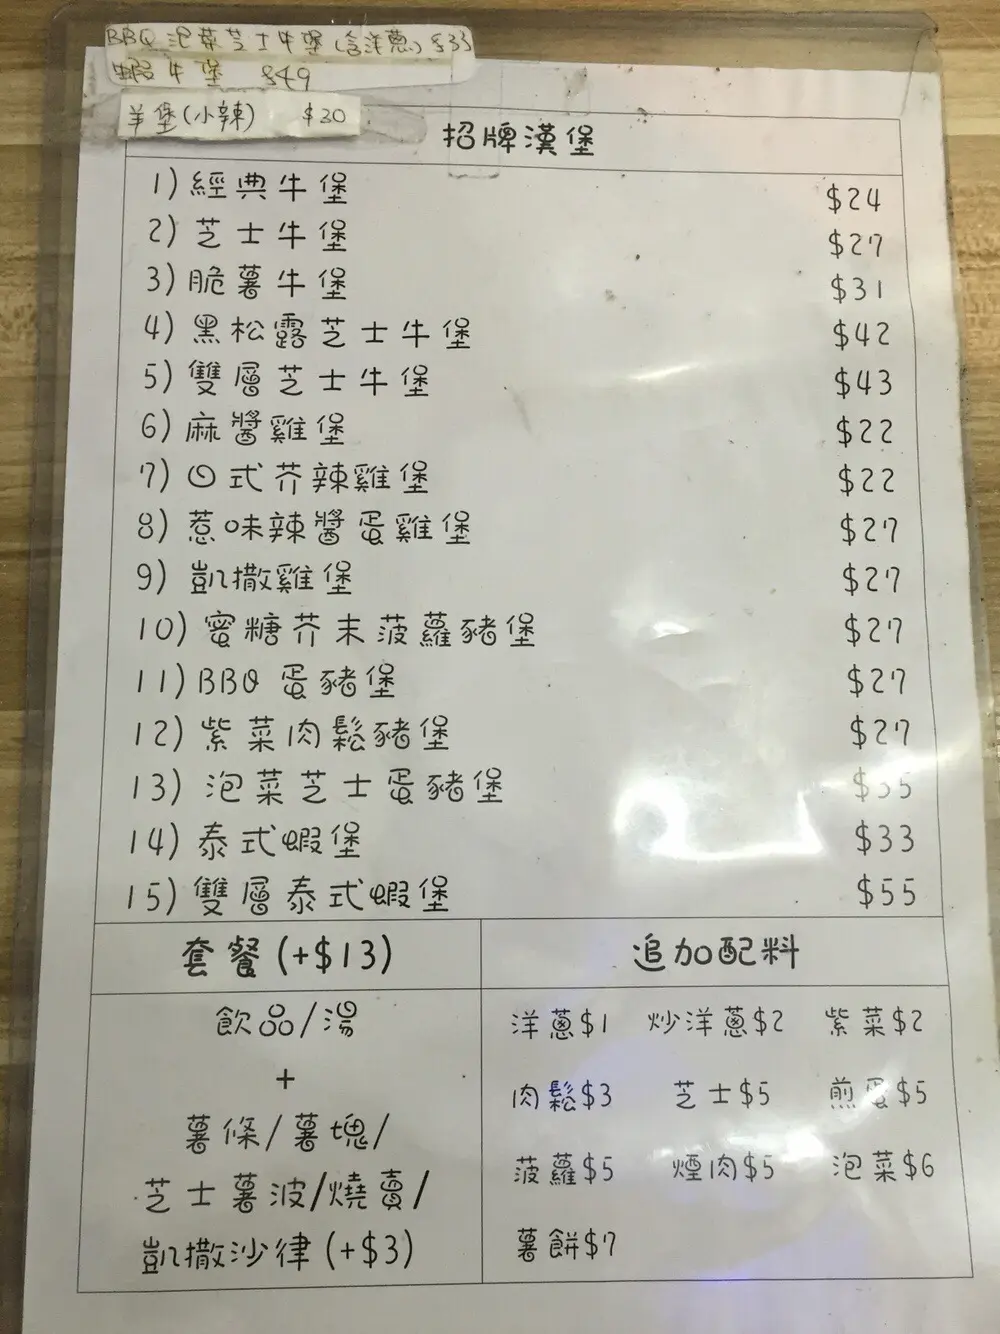 BBQ 泡菜芝士牛堡(含洋蔥) $33
蝦牛堡 $49
羊堡(小辣) $30
招牌漢堡
1) 經典牛堡 $24
2) 芝士牛堡 $27
3) 脆薯牛堡 $31
4) 黑松露芝士牛堡 $42
5) 雙層芝士牛堡 $43
6) 麻醬雞堡 $22
7) 日式芥辣雞堡 $22
8) 惹味辣醬蛋雞堡 $27
9) 凱撒雞堡 $27
10) 蜜糖芥末菠蘿豬堡 $27
11) BBQ 蛋豬堡 $27
12) 紫菜肉鬆豬堡 $27
13) 泡菜芝士蛋豬堡
14) 泰式蝦堡 $33
15) 雙層泰式蝦堡 $55
套餐 (+$13)
飲品/湯
+
薯條/薯塊/
芝士薯波/燒賣/
凱撒沙律 (+$3)
追加配料
洋蔥$1 炒洋蔥$2 紫菜$2
肉鬆$3 芝士$5 煎蛋$5
菠蘿$5 煙肉$5 泡菜$6
薯餅$7